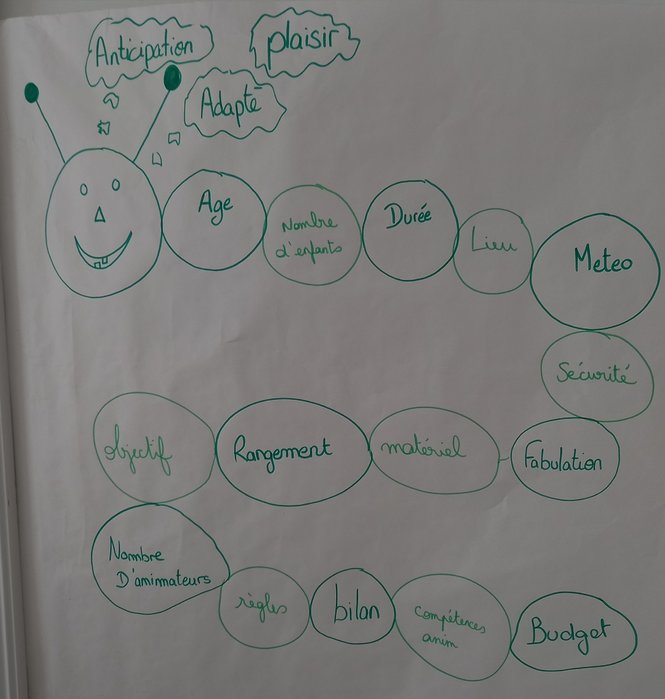 Anticipation
plaisir
Adapté
Age
Nombre
d'enfants
Durée
Lieu
Meteo
Sécurité
Fabulation
matériel
Rangement
objectif
Nombre
D'amimateurs
règles
bilan
compétences
anim
Budget